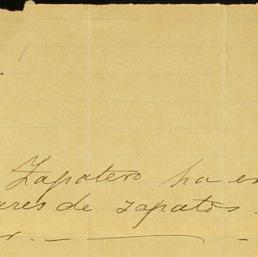 Zapatero ha en
ares de zapatos.